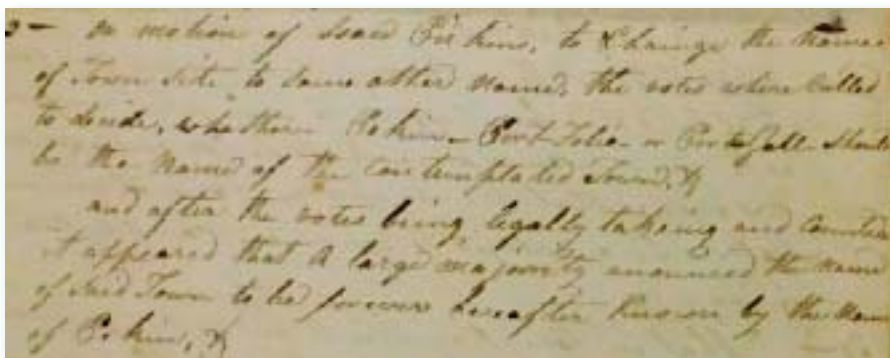 on motion of Isaac Perkins, to Chainge the Name
of Town Site, to some other Name, the votes where Called
to decide, whether Pekin - Port Folio - or Portugall Should
be the Name of the contemplated Town, &
and after the votes being legally takeing and Counted
it appeared that A large majority anounced the Name
of Said Town to be forever hereafter known by the Name
of Pekin, &